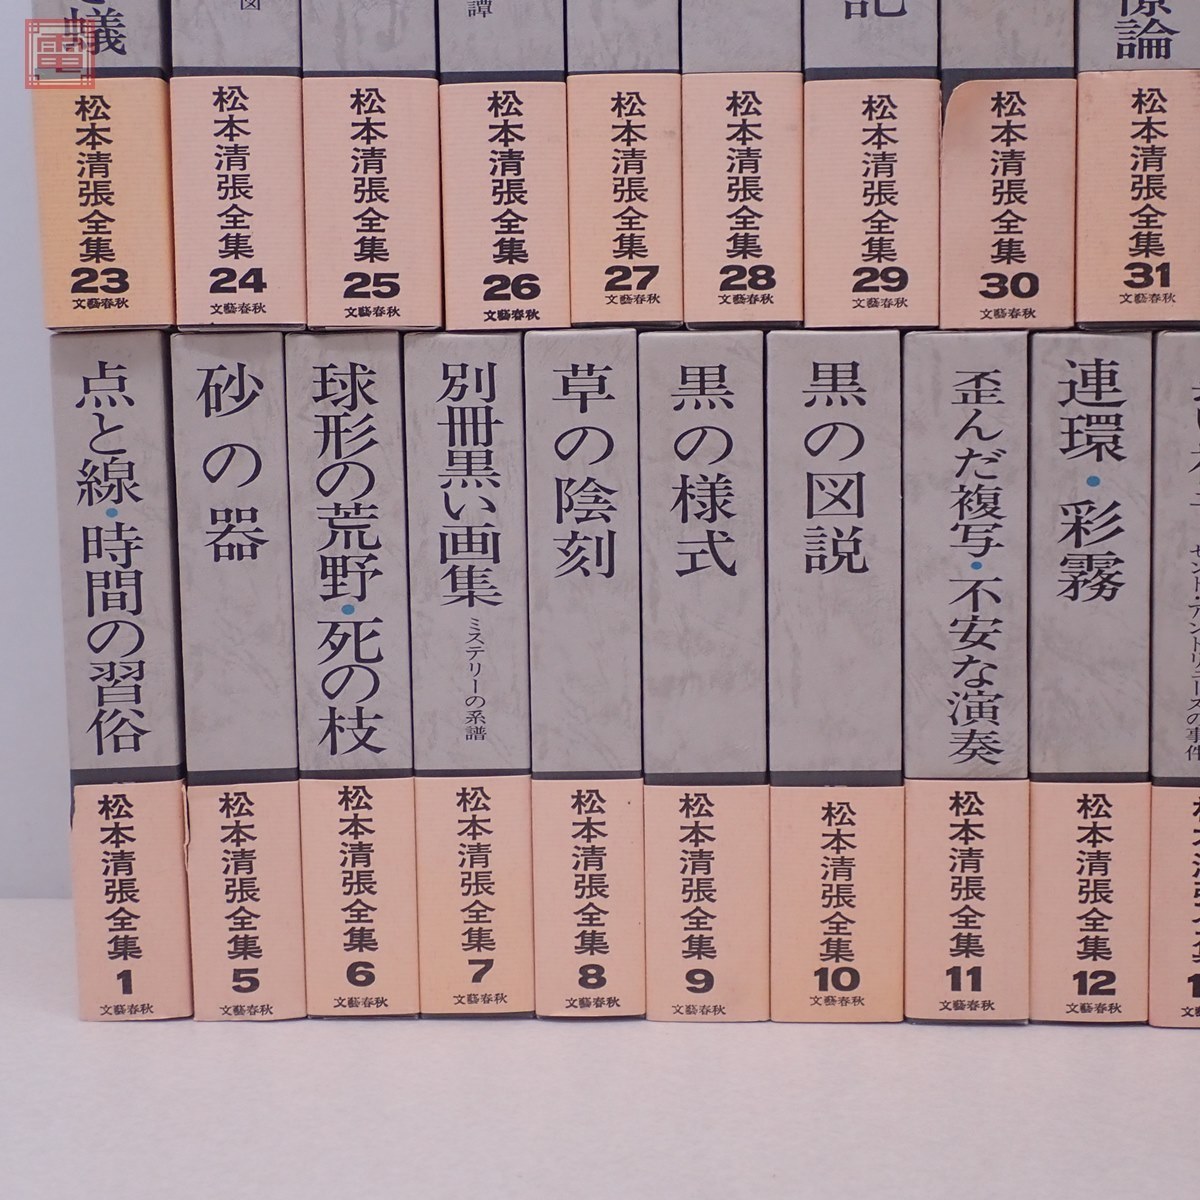 電
蟻
松本清張全集
23
文藝春秋
図
松本清張全集
24
文藝春秋
松本清張全集
25
文藝春秋
譚
松本清張全集
26
文藝春秋
松本清張全集
27
文藝春秋
松本清張全集
28
文藝春秋
記
松本清張全集
29
文藝春秋
松本清張全集
30
文藝春秋
論
松本清張全集
31
文藝春秋
点と線・時間の習俗
松本清張全集
1
文藝春秋
砂の器
松本清張全集
5
文藝春秋
球形の荒野・死の枝
松本清張全集
6
文藝春秋
別冊黒い画集 ミステリーの系譜
松本清張全集
7
文藝春秋
草の陰刻
松本清張全集
8
文藝春秋
黒の様式
松本清張全集
9
文藝春秋
黒の図説
松本清張全集
10
文藝春秋
歪んだ複写・不安な演奏
松本清張全集
11
文藝春秋
連環・彩霧
松本清張全集
12
文藝春秋